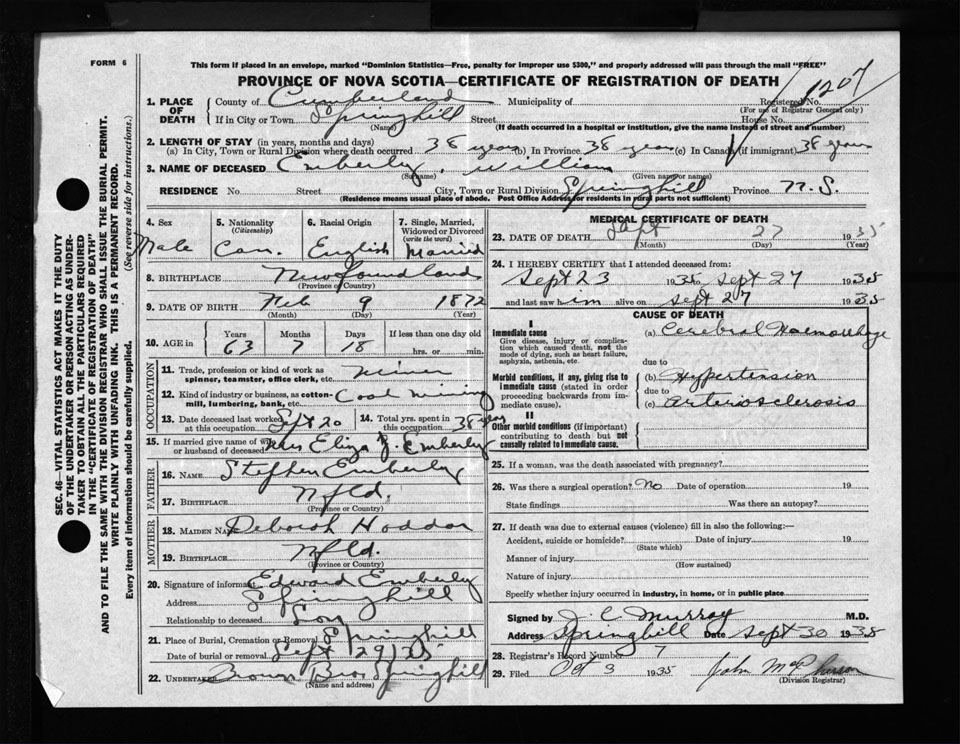 FORM 6
This form if placed in an envelope, marked "Dominion Statistics—Free, penalty for improper use $300," and properly addressed will pass through the mail "FREE"
PROVINCE OF NOVA SCOTIA—CERTIFICATE OF REGISTRATION OF DEATH
1207
1. PLACE OF DEATH County of Cumberland Municipality of Registered No.
(For use of Registrar General only)
If in City or Town Springhill Street House No.
(Name) (If death occurred in a hospital or institution, give the name instead of street and number)
2. LENGTH OF STAY (in years, months and days)
(a) In City, Town or Rural Division where death occurred 38 years (b) In Province 38 years (c) In Canada (if immigrant) 38 years
3. NAME OF DECEASED Emberly, William
(Surname) (Given name or names)
RESIDENCE No. Street City, Town or Rural Division Springhill Province N.S.
(Residence means usual place of abode. Post Office Address for residents in rural parts not sufficient)
4. Sex Male
5. Nationality (Citizenship) Can.
6. Racial Origin English
7. Single, Married, Widowed or Divorced (write the word) Married
8. BIRTHPLACE Newfoundland
(Province or Country)
9. DATE OF BIRTH Feb 9 1872
(Month) (Day) (Year)
10. AGE in Years 63 Months 7 Days 18 If less than one day old hrs. or min.
OCCUPATION
11. Trade, profession or kind of work as spinner, teamster, office clerk, etc. Miner
12. Kind of industry or business, as cotton-mill, lumbering, bank, etc. Coal mining
13. Date deceased last worked at this occupation Sept 20
14. Total yrs. spent in this occupation 38 yrs
15. If married give name of wife or husband of deceased Mrs Eliza J. Emberly
FATHER
16. NAME Stephen Emberly
17. BIRTHPLACE Nfld.
(Province or Country)
MOTHER
18. MAIDEN NAME Deborah Hoddar
19. BIRTHPLACE Nfld.
(Province or Country)
20. Signature of informant Edward Emberly
Address Springhill
Relationship to deceased Son
21. Place of Burial, Cremation or Removal Springhill
Date of burial or removal Sept 29, 35
22. UNDERTAKER Brown Bros Springhill
(Name and address)
MEDICAL CERTIFICATE OF DEATH
23. DATE OF DEATH Sept 27 1935
(Month) (Day) (Year)
24. I HEREBY CERTIFY that I attended deceased from:
Sept 23 1935 to Sept 27 1935
and last saw him alive on Sept 27 1935
CAUSE OF DEATH
I
Immediate cause (a) Cerebral Haemorrhage
Give disease, injury or complication which caused death, not the mode of dying, such as heart failure, asphyxia, asthenia, etc.
due to
Morbid conditions, if any, giving rise to immediate cause (stated in order proceeding backwards from immediate cause). (b) Hypertension
due to
(c) arteriosclerosis
II
Other morbid conditions (if important) contributing to death but not causally related to immediate cause.
25. If a woman, was the death associated with pregnancy?
26. Was there a surgical operation? No Date of operation 19
State findings Was there an autopsy?
27. If death was due to external causes (violence) fill in also the following:—
Accident, suicide or homicide? Date of injury 19
(State which)
Manner of injury
(How sustained)
Nature of injury
Specify whether injury occurred in industry, in home, or in public place
Signed by J. C. Murray M.D.
Address Springhill Date Sept 30 1935
28. Registrar's Record Number 7
29. Filed Oct 3 1935 John McPherson
(Division Registrar)
SEC. 46—VITAL STATISTICS ACT MAKES IT THE DUTY
OF THE UNDERTAKER OR PERSON ACTING AS UNDER-
TAKER TO OBTAIN ALL THE PARTICULARS REQUIRED
IN THE "CERTIFICATE OF REGISTRATION OF DEATH"
AND TO FILE THE SAME WITH THE DIVISION REGISTRAR WHO SHALL ISSUE THE BURIAL PERMIT.
WRITE PLAINLY WITH UNFADING INK. THIS IS A PERMANENT RECORD.
Every item of information should be carefully supplied. (See reverse side for instructions.)